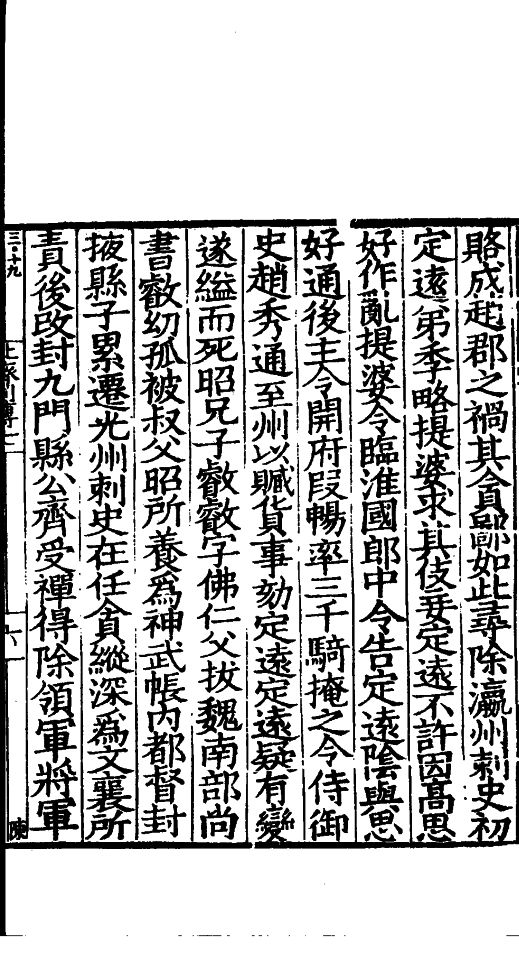 賂成趙郡之禍其貪鄙如此尋除瀛州刺史初
定遠弟季略提婆求其伎妾定遠不許因髙思
好作亂提婆令臨淮國郎中令告定遠隂與思
好通後主令開府段暢率三千騎掩之令侍御
史趙秀通至州以贓貨事劾定遠定遠疑有變
遂縊而死昭兄子叡叡字佛仁父拔魏南部尚
書叡幼孤被叔父昭所養爲神武帳内都督封
掖縣子累遷光州刺史在任貪縱深爲文襄所
責後改封九門縣公齊受禪得除領軍將軍
三・十九
六
陳